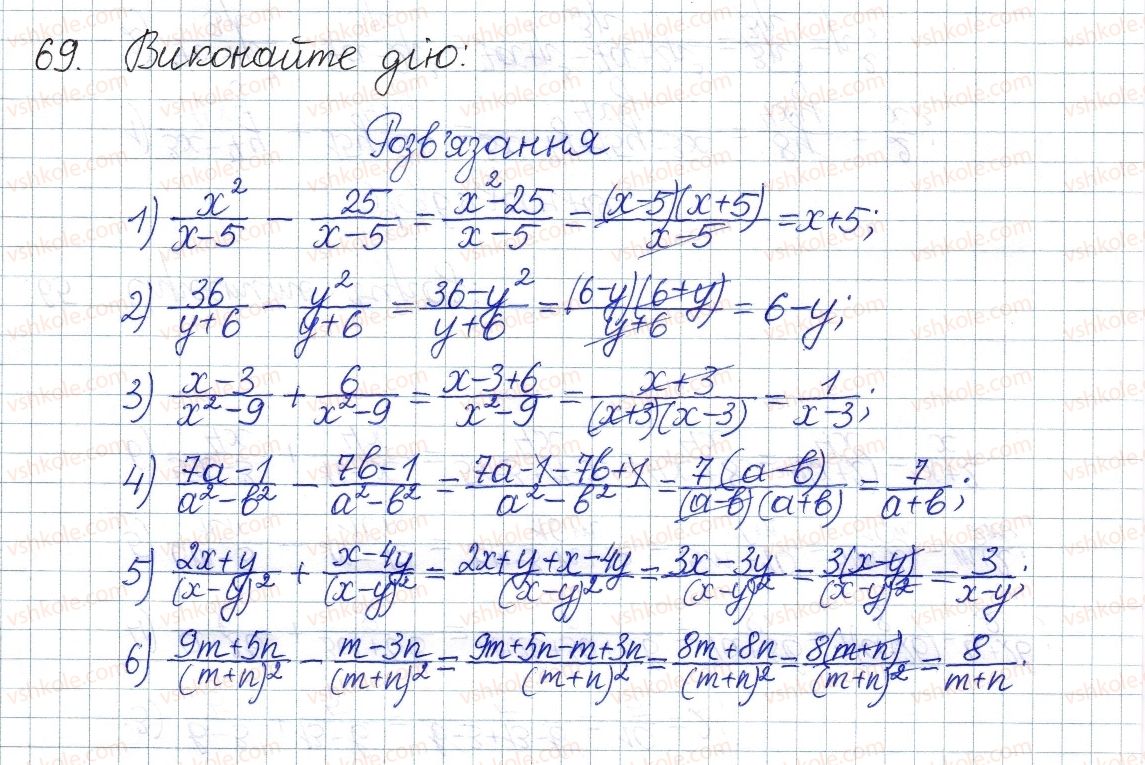 69. Виконайте дію:
Розв'язання
1) x²/(x-5) - 25/(x-5) = (x²-25)/(x-5) = (x-5)(x+5)/(x-5) = x+5;
2) 36/(y+6) - y²/(y+6) = (36-y²)/(y+6) = (6-y)(6+y)/(y+6) = 6-y;
3) (x-3)/(x²-9) + 6/(x²-9) = (x-3+6)/(x²-9) = (x+3)/((x+3)(x-3)) = 1/(x-3);
4) (7a-1)/(a²-b²) - (7b-1)/(a²-b²) = (7a-1-7b+1)/(a²-b²) = 7(a-b)/((a-b)(a+b)) = 7/(a+b);
5) (2x+y)/(x-y)² + (x-4y)/(x-y)² = (2x+y+x-4y)/(x-y)² = (3x-3y)/(x-y)² = 3(x-y)/(x-y)² = 3/(x-y);
6) (9m+5n)/(m+n)² - (m-3n)/(m+n)² = (9m+5n-m+3n)/(m+n)² = (8m+8n)/(m+n)² = 8(m+n)/(m+n)² = 8/(m+n).